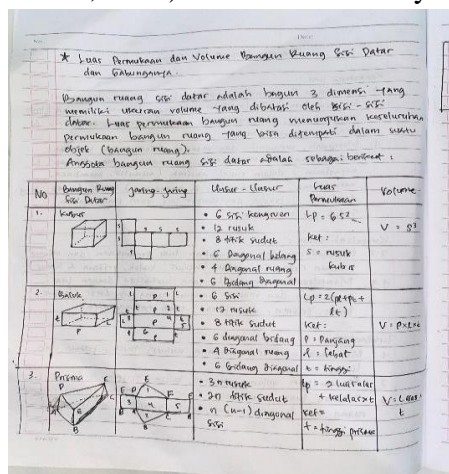 * Luas Permukaan dan Volume Bangun Ruang Sisi Datar
dan Gabungannya.
Bangun ruang sisi datar adalah bagun 3 dimensi yang
memiliki ukuran volume yang dibatasi oleh sisi-sisi
datar. Luas permukaan bangun ruang menunjukkan keseluruhan
permukaan bangun ruang yang bisa ditempati dalam suatu
objek (bangun ruang).
Anggota bangun ruang sisi datar adalah sebagai berikut :
No Bangun Ruang Sisi Datar Jaring-Jaring Unsur-Unsur Luas Permukaan Volume
1. Kubus
• 6 sisi kongruen
• 12 rusuk
• 8 titik sudut
• 6 Diagonal bidang
• 4 Diagonal ruang
• 6 Bidang Diagonal
Lp = 6.s²
ket :
s = rusuk
kubus
V = s³
2. Balok
• 6 sisi
• 12 rusuk
• 8 titik sudut
• 6 diagonal bidang
• 4 Diagonal ruang
• 6 Bidang Diagonal
Lp = 2(pl+pt+
lt)
Ket :
P = Panjang
l = lebar
t = tinggi
V = P×l×t
3. Prisma
• 3n rusuk
• 2n titik sudut
• n (n-1) diagonal
sisi
Lp = 2 luas alas
+ kelalas×t
ket=
t = tinggi prisma
V = L alas ×
t